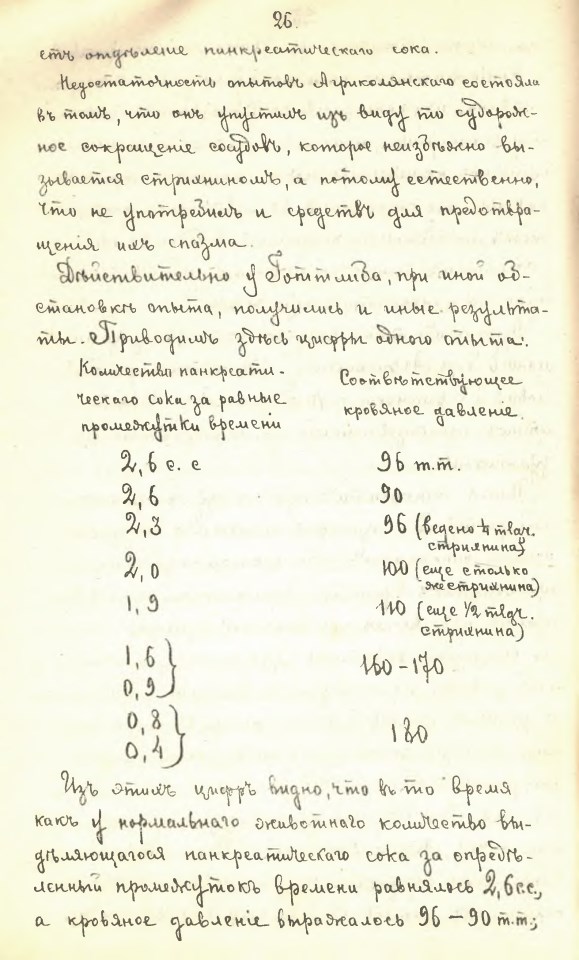 26.
етъ отдѣленіе панкреатическаго сока.
Недостаточность опытовъ Агриколянскаго состояла
въ томъ, что онъ упустилъ изъ виду то судорож-
ное сокращеніе сосудовъ, которое неизбѣжно вы-
зывается стрихниномъ, а потому естественно,
что не употребилъ и средствъ для предотвра-
щенія ихъ спазма.
Дѣйствительно у Готтлиба, при иной об-
становкѣ опыта, получились и иные результа-
ты. Приводимъ здѣсь цифры одного опыта.
Количество панкреати-
ческаго сока за равные
промежутки времени
Соотвѣтствующее
кровяное давленіе.
2,6 с. с 96 m.m.
2,6 90
2,3 96 (ведено ¼ mlgr.
стрихнина)
2,0 100 (еще столько
же стрихнина)
1,9 110 (еще ½ mlgr.
стрихнина)
1,6 } 160-170
0,9
0,8 } 180
0,4
Изъ этихъ цифръ видно, что въ то время
какъ у нормальнаго животнаго количество вы-
дѣляющагося панкреатическаго сока за опредѣ-
ленный промежутокъ времени равнялось 2,6 с.с.,
а кровяное давленіе выражалось 96 – 90 m.m.;